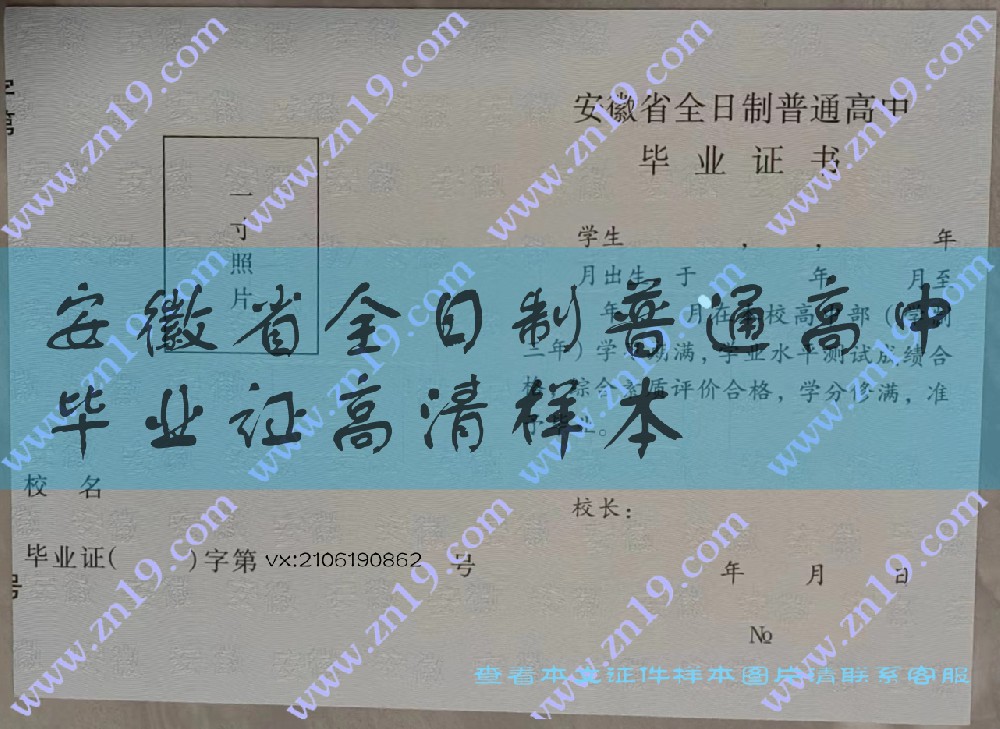 字第
安徽省全日制普通高中
毕业证书
一寸照片
学生 , , 年
月出生 于 年 月至
年 月在 校高中部(学制
三年)学习期满,学业水平测试成绩合
格,综合素质评价合格,学分修满,准
安徽省全日制普通高中
毕业证高清样本
校 名
校长:
毕业证( )字第 vx:2106190862 号
号
年 月 日
№
查看本文证件样本图片请联系客服
www.zn19.com
www.zn19.com
www.zn19.com
www.zn19.com
www.zn19.com
www.zn19.com
www.zn19.com
www.zn19.com
www.zn19.com
www.zn19.com
www.zn19.com
www.zn19.com